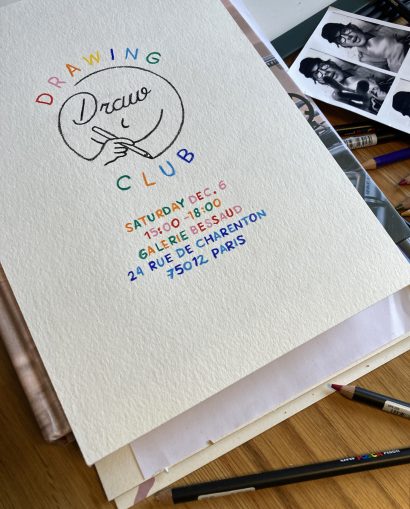 DRAWING
Draw
CLUB
SATURDAY DEC. 6
15:00-18:00
GALERIE BESSAUD
24 RUE DE CHARENTON
75012 PARIS